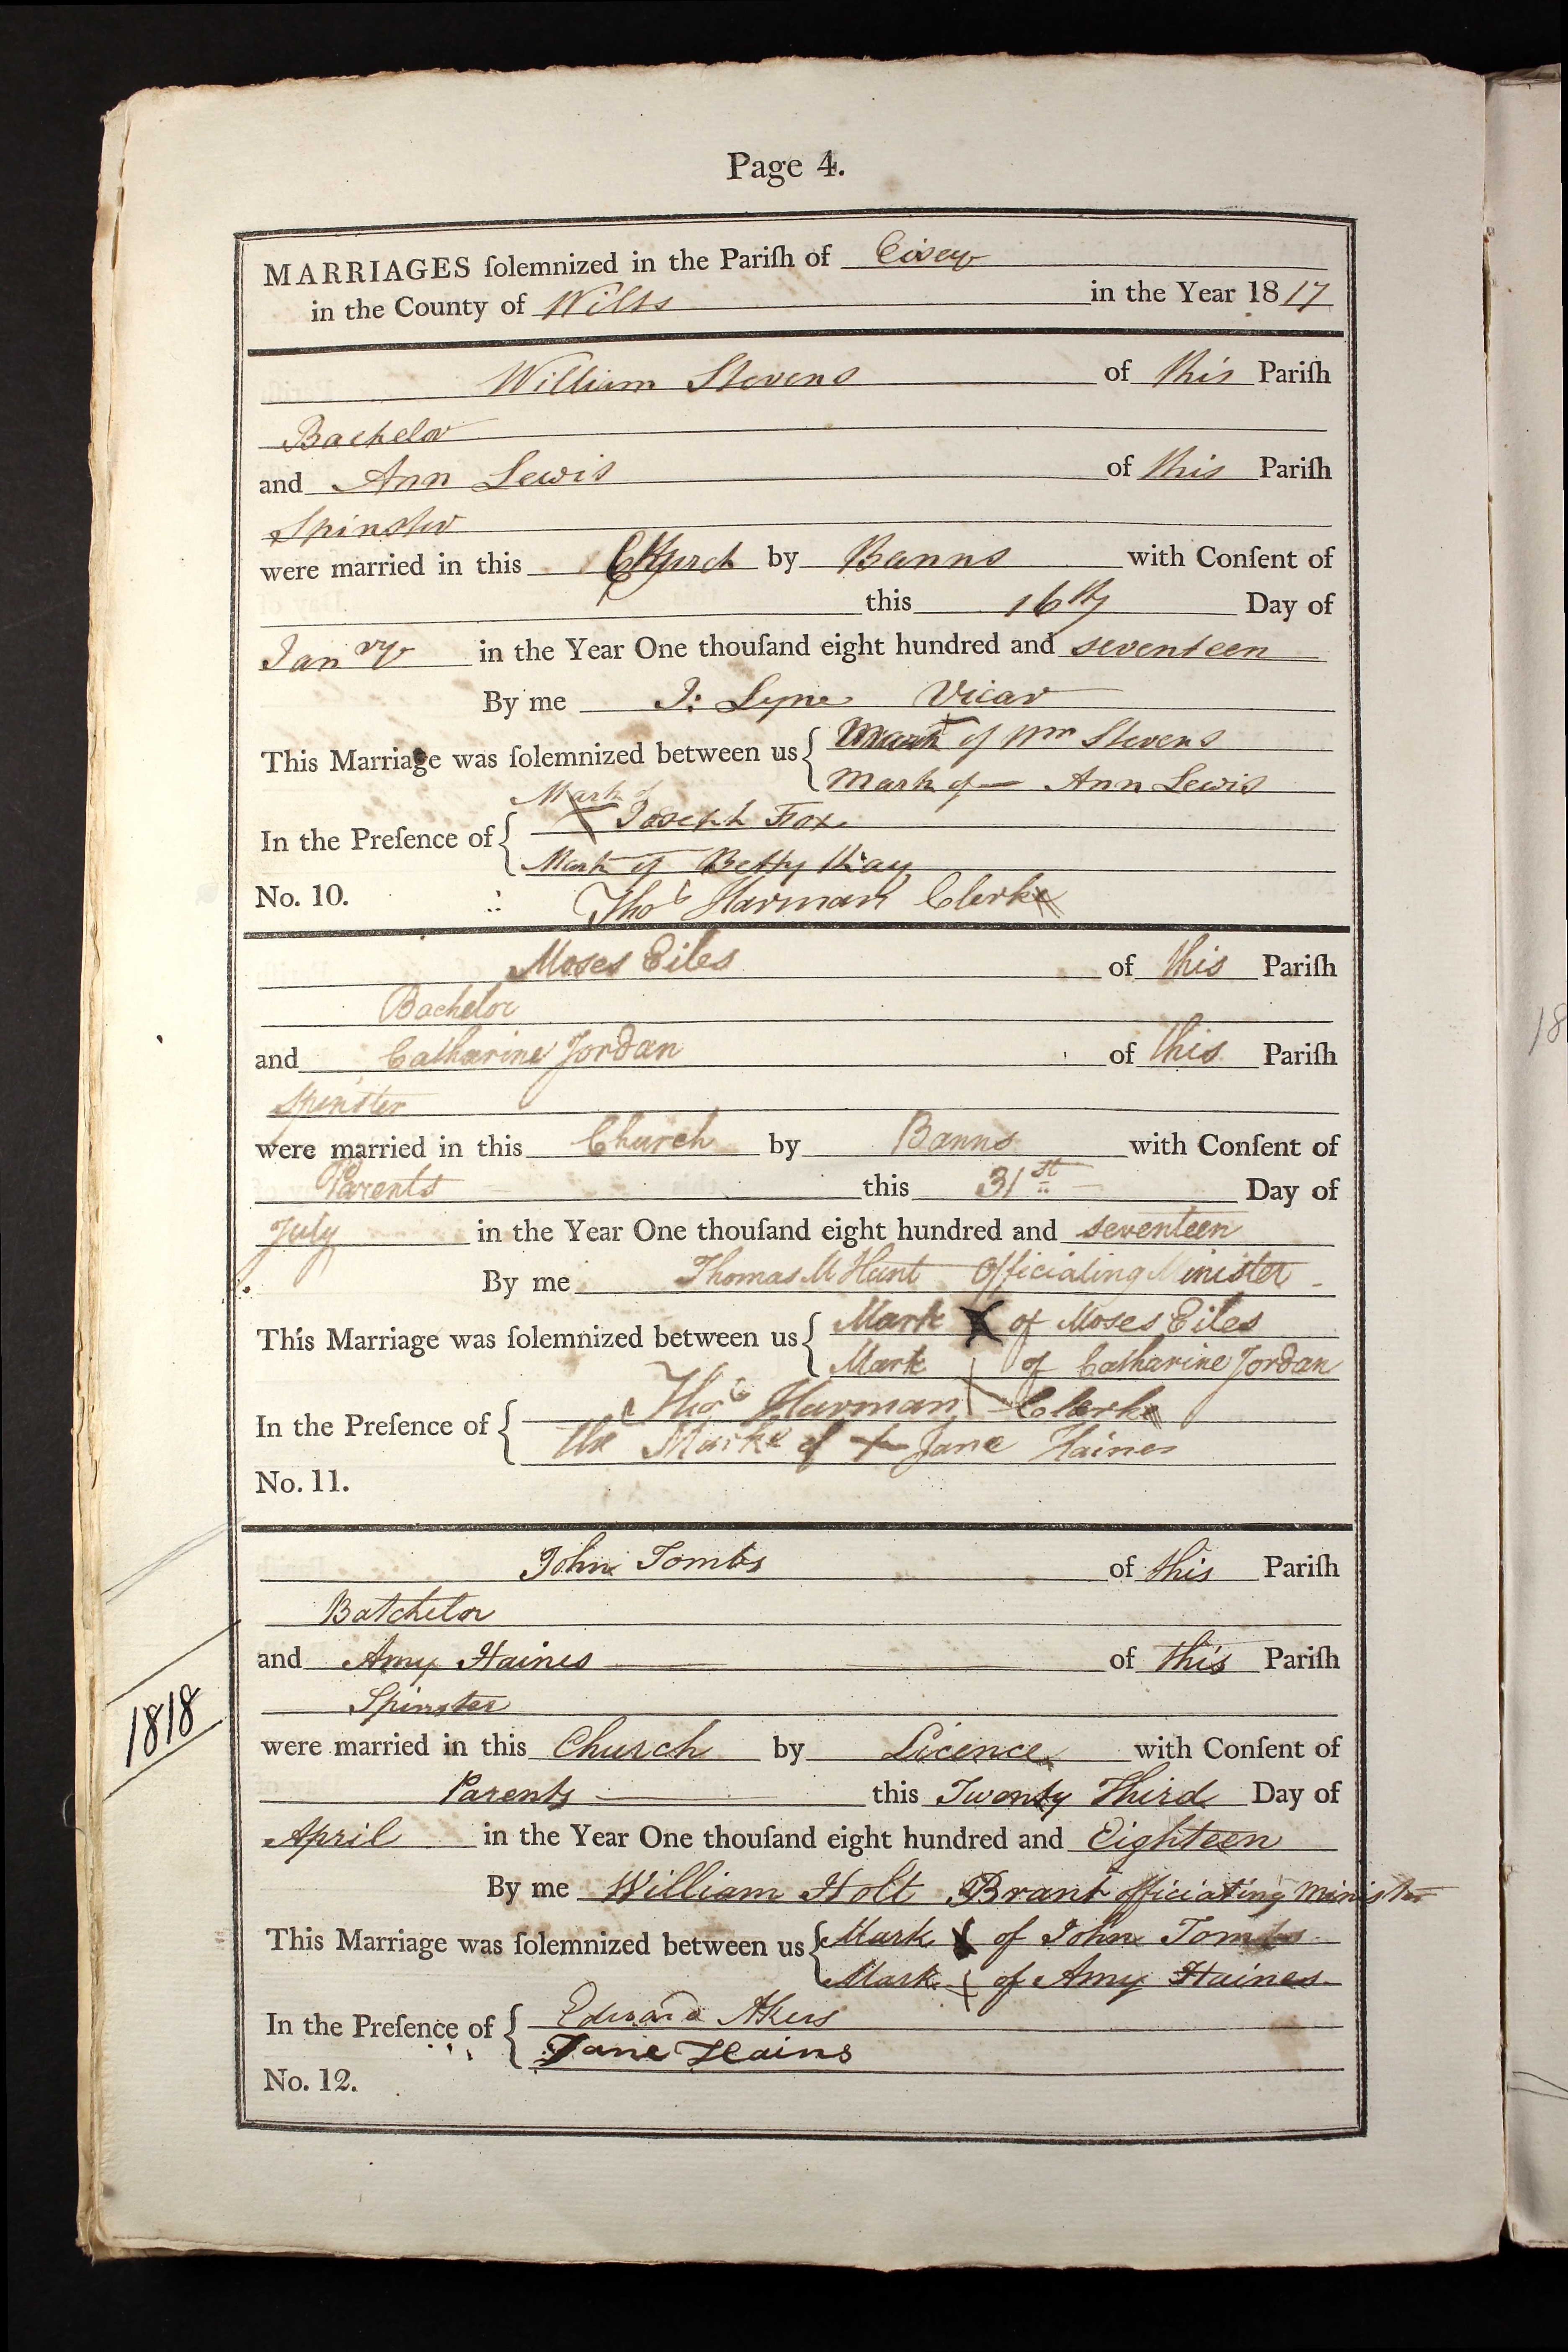 Page 4.
MARRIAGES ſolemnized in the Pariſh of Eisey
in the County of Wilts in the Year 1817
William Stevens of this Pariſh
Bachelor
and Ann Lewis of this Pariſh
Spinster
were married in this Church by Banns with Conſent of
this 16th Day of
Janry in the Year One thouſand eight hundred and seventeen
By me J: Lyne Vicar
This Marriage was ſolemnized between us { Mark of Wm Stevens
Mark of — Ann Lewis
Mark of
In the Preſence of { X Joseph Fox
Mark of Betty
No. 10. Thos Harman Clerke
Moses Eiles of this Pariſh
Bachelor
and Catharine Jordan of this Pariſh
Spinster
were married in this Church by Banns with Conſent of
Parents this 31st Day of
July in the Year One thouſand eight hundred and seventeen
By me Thomas M Hunt Officiating Minister
This Marriage was ſolemnized between us { Mark X of Moses Eiles
Mark X of Catharine Jordan
In the Preſence of { Thos Harman Clerke
the Marke of + Jane Haines
No. 11.
John Tombs of this Pariſh
Batchelor
and Amy Haines of this Pariſh
Spinster
1818
were married in this Church by Licence with Conſent of
Parents this Twenty Third Day of
April in the Year One thouſand eight hundred and Eighteen
By me William Holt Brant officiating Minister
This Marriage was ſolemnized between us { Mark X of John Tombs
Mark X of Amy Haines
In the Preſence of { Edward Akers
Jane Hains
No. 12.
18